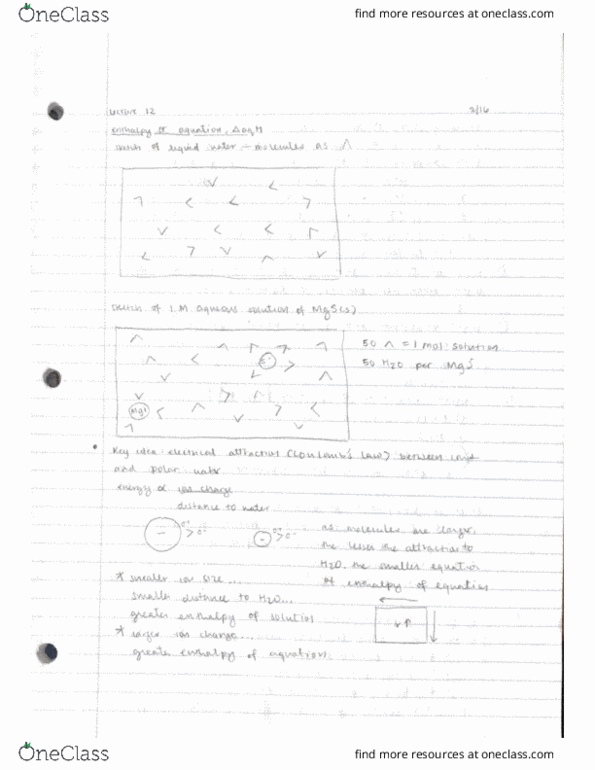 OneClass
find more resources at oneclass.com
Lecture 12
2/16
enthalpy of aquation, ΔaqH
sketch of liquid water - molecules as Λ
sketch of 1 M aqueous solution of MgS(s)
50 Λ = 1 mol: solution
50 H2O per MgS
Key idea: electrical attraction (Coulomb's Law) between
and polar water
energy ∝ ion charge
distance to water
as molecules are larger,
the lesser the attraction to
H2O. the smaller equation
of enthalpy of equation
* smaller ion size...
smaller distance to H2O...
greater enthalpy of solution
* larger ion charge...
greater enthalpy of aquation.
OneClass
find more resources at oneclass.com